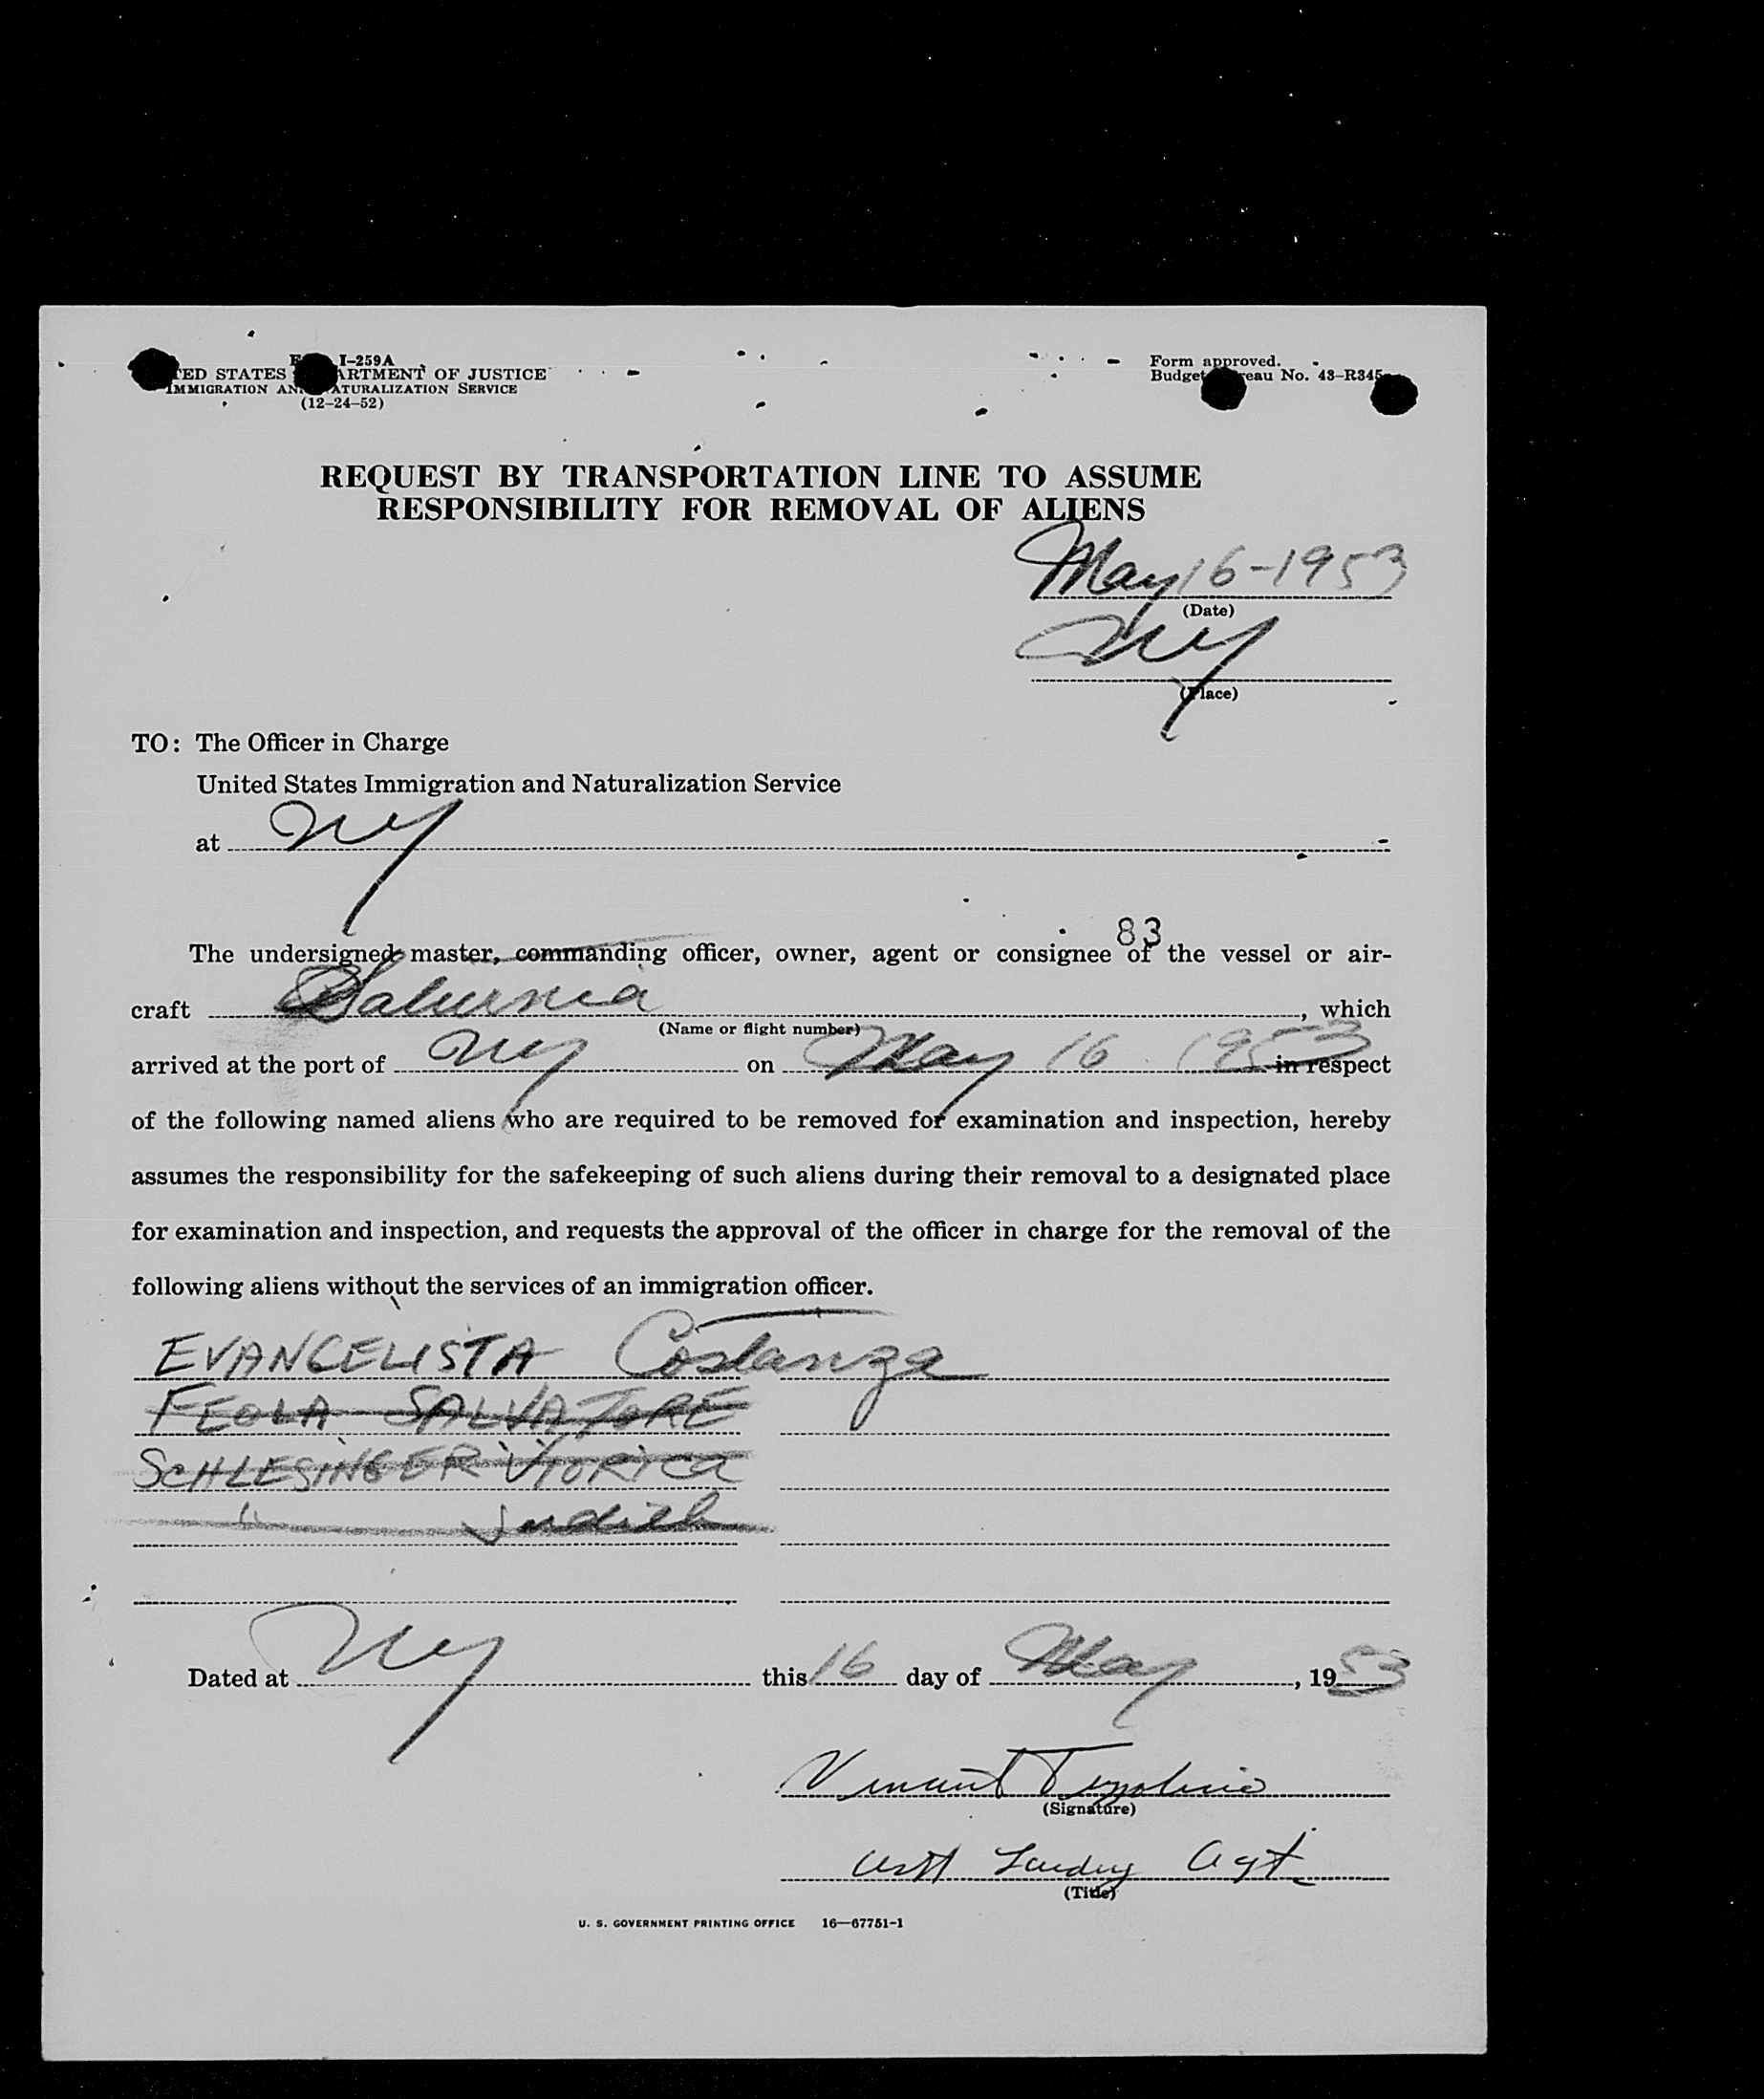 I-259A
ED STATES ARTMENT OF JUSTICE
IMMIGRATION AN ATURALIZATION SERVICE
(12-24-52)
Form approved.
Budget eau No. 43-R345
REQUEST BY TRANSPORTATION LINE TO ASSUME
RESPONSIBILITY FOR REMOVAL OF ALIENS
May 16-1953
(Date)
NY
(Place)
TO: The Officer in Charge
United States Immigration and Naturalization Service
at NY
83
The undersigned master, commanding officer, owner, agent or consignee of the vessel or air-
craft Saturnia, which
(Name or flight number)
arrived at the port of NY on May 16 1953 in respect
of the following named aliens who are required to be removed for examination and inspection, hereby
assumes the responsibility for the safekeeping of such aliens during their removal to a designated place
for examination and inspection, and requests the approval of the officer in charge for the removal of the
following aliens without the services of an immigration officer.
EVANGELISTA Costanza
FEOLA SALVATORE
SCHLESINGER VIORICA
" Judith
Dated at NY this 16 day of May, 1953
Vincent
(Signature)
Asst Landing Agt
(Title)
U. S. GOVERNMENT PRINTING OFFICE 16—67751-1